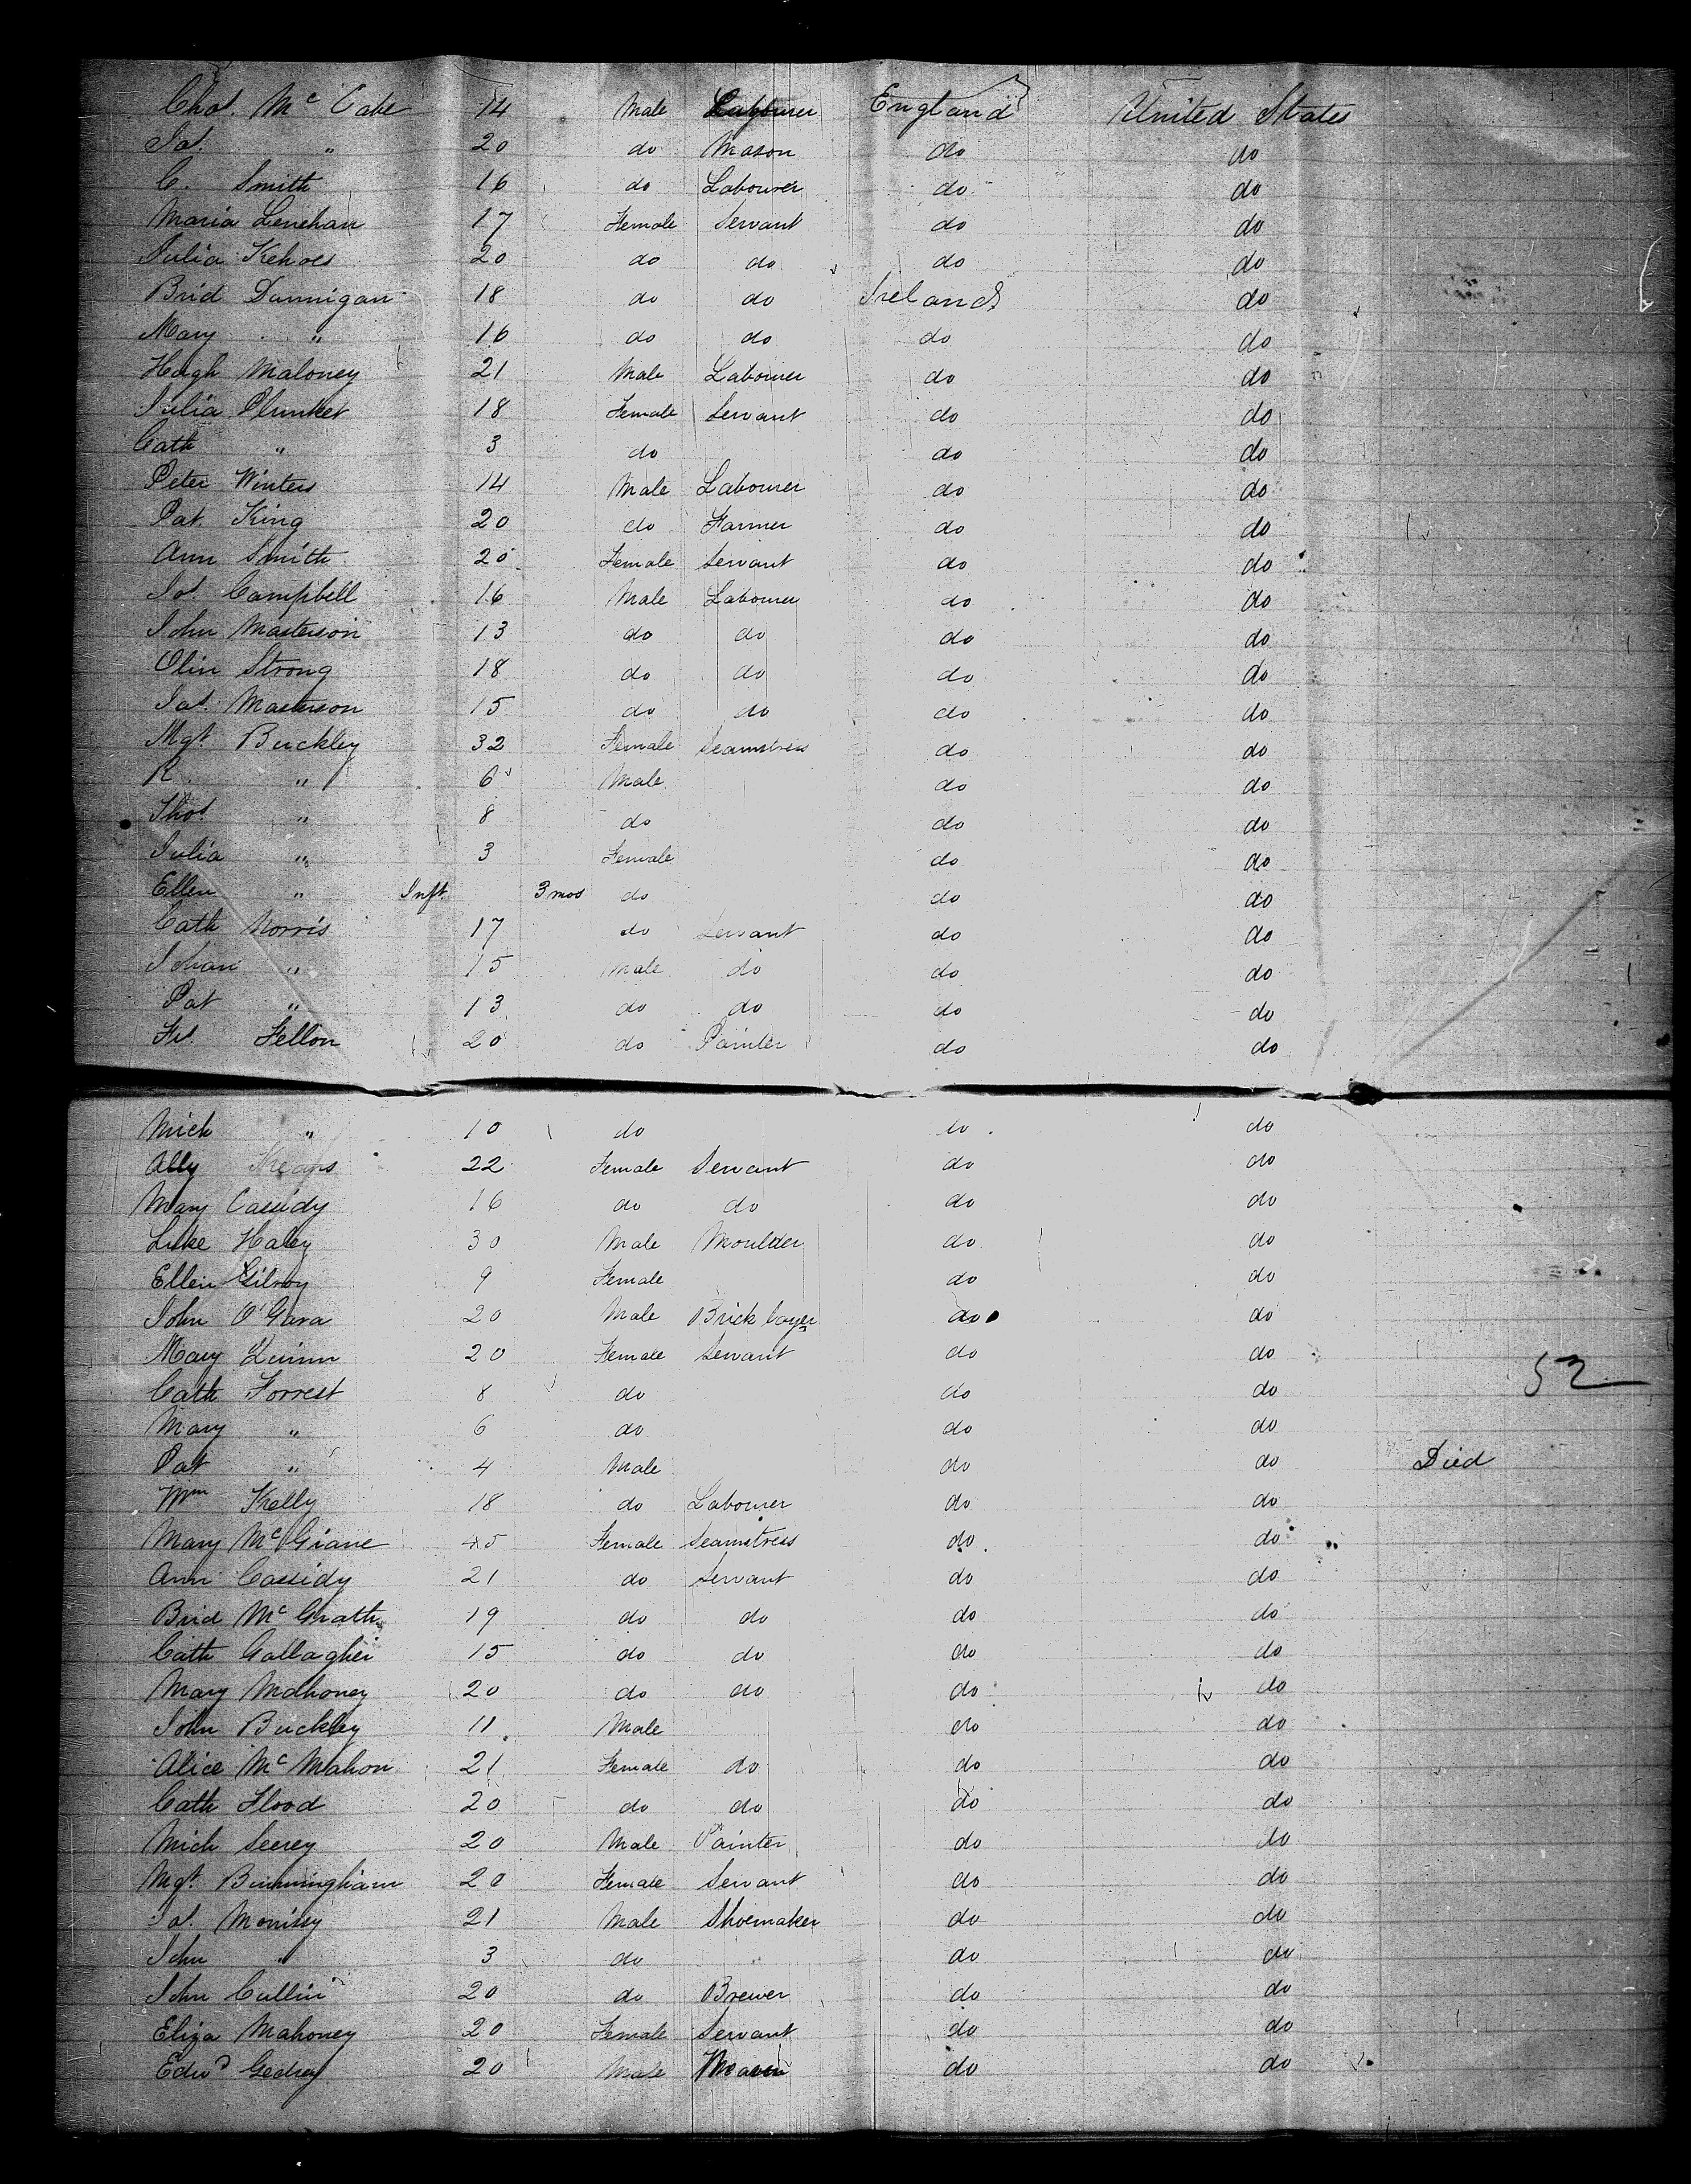 Chas. Mc Cabe 14 Male Labourer England United States
Jas. " 20 do Mason do do
C. Smith 16 do Labourer do do
Maria Lenehan 17 Female Servant do do
Julia Kehoes 20 do do do do
Brid Dannigan 18 do do Ireland do
Mary " 16 do do do do
Hugh Maloney 21 Male Labourer do do
Julia Plunket 18 Female Servant do do
Cath " 3 do do do
Peter Winters 14 Male Labourer do do
Pat. King 20 do Farmer do do
Ann Smith 20 Female Servant do do
Jas. Campbell 16 Male Labourer do do
John Masterson 13 do do do do
Olin Strong 18 do do do do
Jas. Masterson 15 do do do do
Mgt. Buckley 32 Female Seamstress do do
R. " 6 Male do do
Thos. " 8 do do do
Julia " 3 Female do do
Ellen " Inft. 3 mos do do do
Cath Norris 17 do Servant do do
Johan " 15 Male do do do
Pat " 13 do do do do
Fellon 20 do Painter do do
Mich " 10 do do do
Ally 22 Female Servant do do
Mary Cassidy 16 do do do do
Luke Haley 30 Male Moulder do do
Ellen Gilroy 9 Female do do
John O'Gara 20 Male Brick layer do do
Mary Quinn 20 Female Servant do do
Cath Forrest 8 do do do 52
Mary " 6 do do do
Pat " 4 Male do do Died
Wm Kelly 18 do Labourer do do
Mary Mc Giane 45 Female Seamstress do do
Ann Cassidy 21 do Servant do do
Brid Mc Grath 19 do do do do
Cath Gallagher 15 do do do do
Mary Mahoney 20 do do do do
John Buckley 11 Male do do
Alice Mc Mahon 21 Female do do do
Cath Flood 20 do do do do
Mich Seerey 20 Male Painter do do
Mgt. Binmingham 20 Female Servant do do
Jas. Morrissy 21 Male Shoemaker do do
John " 3 do " do do
John Cullin 20 do Brewer do do
Eliza Mahoney 20 Female Servant do do
Edwd 20 Male Mason do do